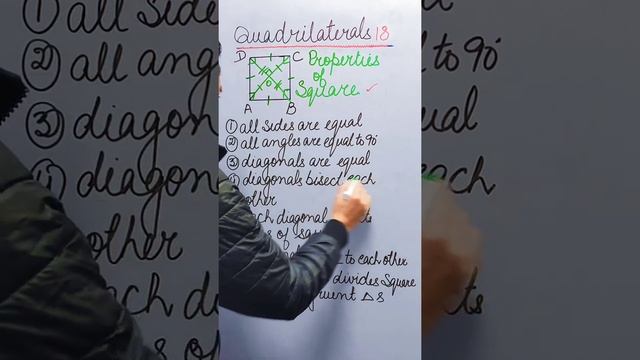 Quadrilaterals 18
D C Properties
of
Square ✓
O
A B
① all sides are equal
② all angles are equal to 90°
③ diagonals are equal
④ diagonals bisect each
other
each diagonal
of
⊥ to each other
divides Square
△s